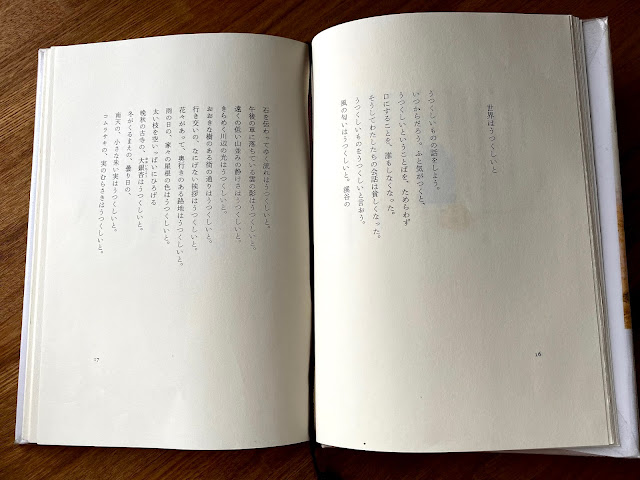 世界はうつくしいと
うつくしいものの話をしよう。
いつからだろう。ふと気がつくと、
うつくしいということばを、ためらわず
口にすることを、誰もしなくなった。
そうしてわたしたちの会話は貧しくなった。
うつくしいものをうつくしいと言おう。
風の匂いはうつくしいと。渓谷の
16
石を伝わってゆく流れはうつくしいと。
午後の草に落ちている雲の影はうつくしいと。
遠くの低い山並みの静けさはうつくしいと。
きらめく川辺の光はうつくしいと。
おおきな樹のある街の通りはうつくしいと。
行き交いの、なにげない挨拶はうつくしいと。
花々があって、奥行きのある路地はうつくしいと。
雨の日の、家々の屋根の色はうつくしいと。
太い枝を空いっぱいにひろげる
晩秋の古寺の、大銀杏はうつくしいと。
冬がくるまえの、曇り日の、
南天の、小さな朱い実はうつくしいと。
コムラサキの、実のむらさきはうつくしいと。
17